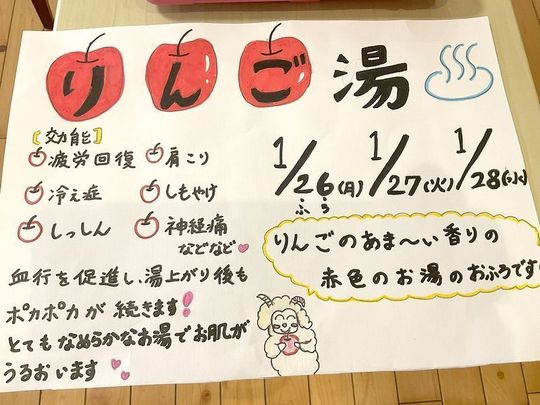 りんご湯
【効能】
疲労回復 肩こり
冷え症 しもやけ
しっしん 神経痛
などなど
血行を促進し、湯上がり後も
ポカポカが続きます!
とてもなめらかなお湯でお肌が
うるおいます
1/26(月) 1/27(火) 1/28(水)
ふろ
りんごのあま〜い香りの
赤色のお湯のおふろです